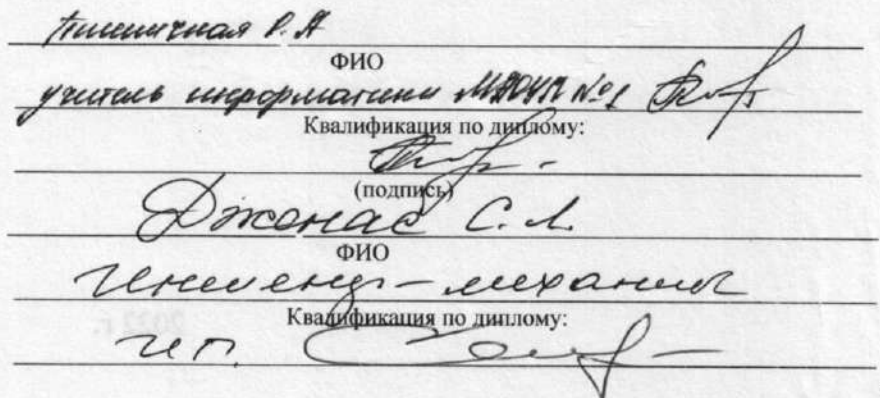 Пшеничная Р. А
ФИО
учитель информатики №1
Квалификация по диплому:
(подпись)
Джонас С. Л.
ФИО
Инженер-механик
Квалификация по диплому:
ИП.
2022 г.